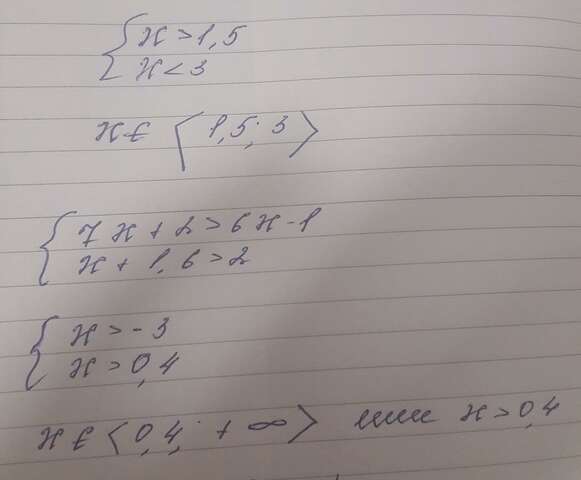 { x > 1,5
x < 3
x ∈ ⟨1,5; 3⟩
{ 7x + 2 > 6x - 1
x + 1,6 > 2
{ x > - 3
x > 0,4
x ∈ ⟨0,4; + ∞⟩ или x > 0,4